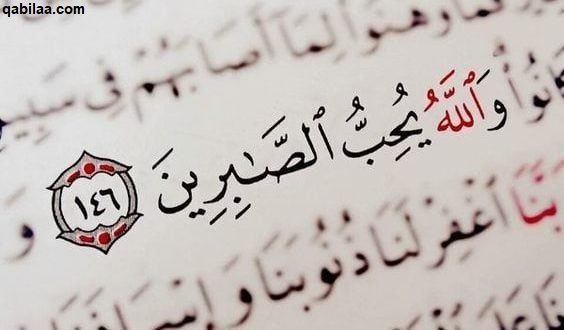 qabilaa.com
وَهَنُوا۟ لِمَآ أَصَابَهُمْ فِى سَبِيلِ
كَانُوا۟ وَٱللَّهُ يُحِبُّ ٱلصَّـٰبِرِينَ ١٤٦ و
رَبَّنَا ٱغْفِرْ لَنَا ذُنُوبَنَا وَإِسْرَافَنَا